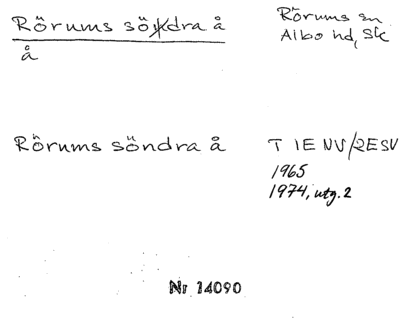 Rörums södra å
Rörums sn
Albo hd, Sk
å
Rörums söndra å
T 1E NV/2E SV
1965
1974, utg. 2
Nr 14090